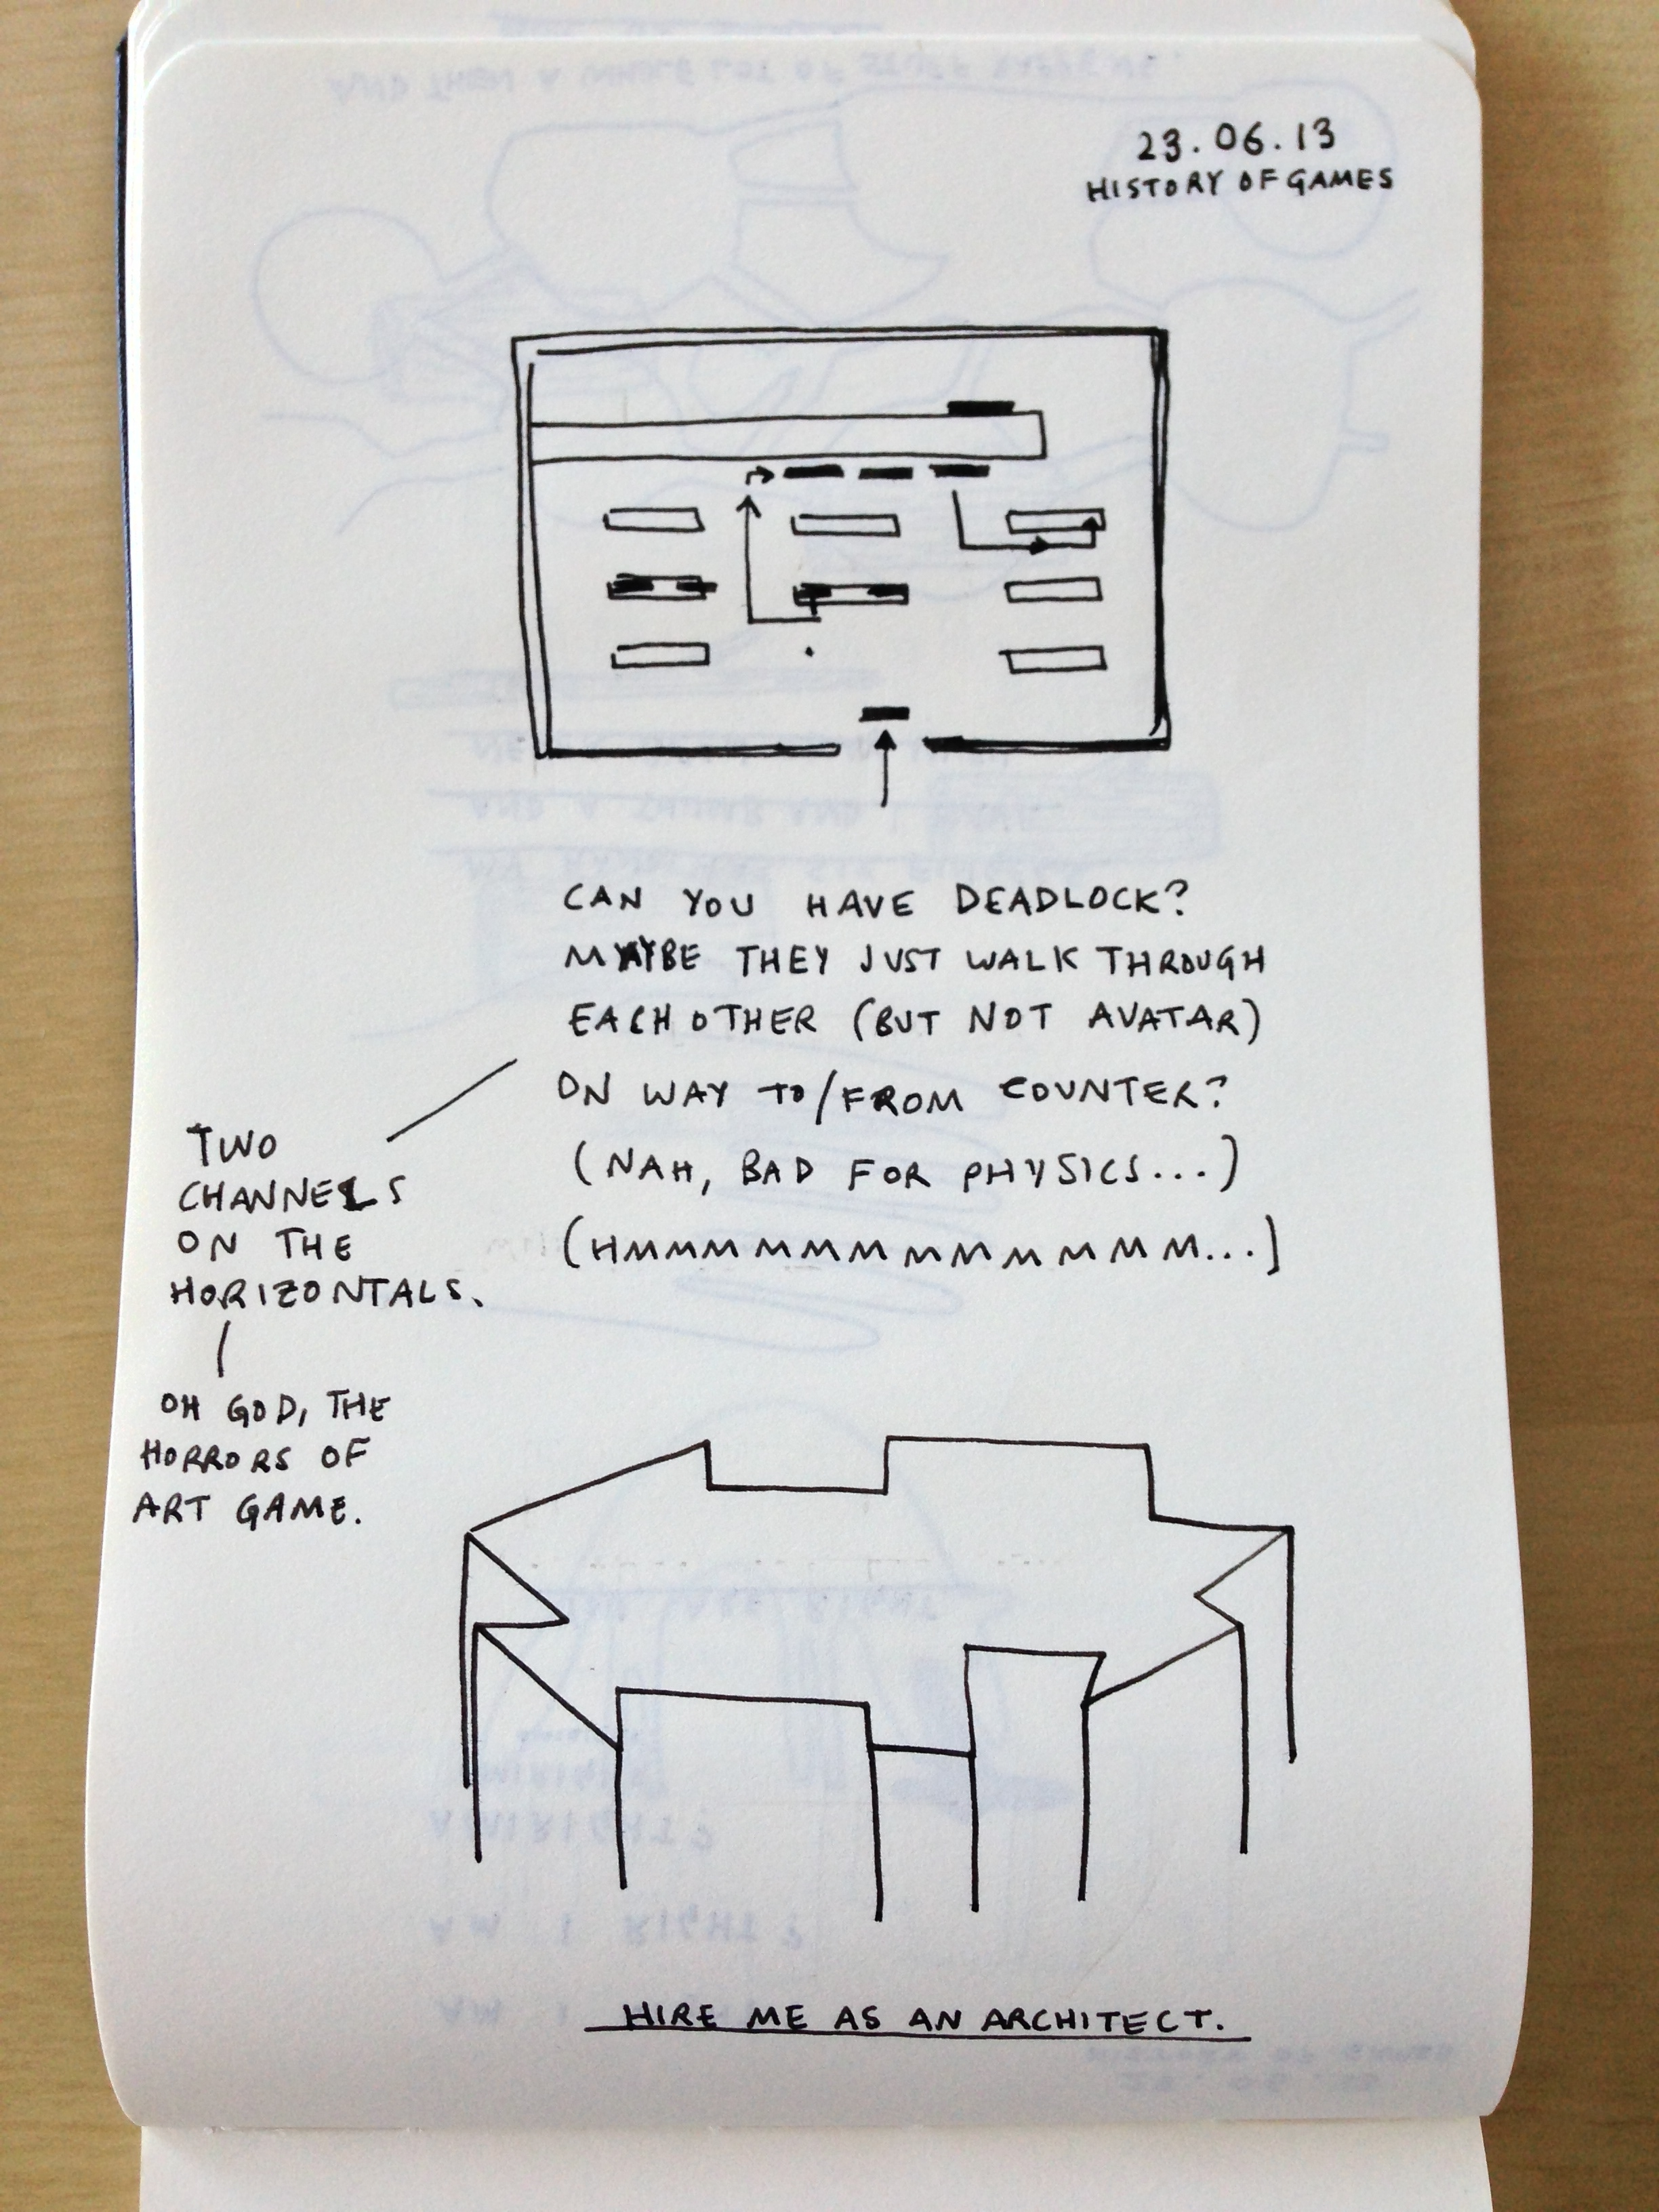 23.06.13
HISTORY OF GAMES
CAN YOU HAVE DEADLOCK?
MAYBE THEY JUST WALK THROUGH
EACH OTHER (BUT NOT AVATAR)
ON WAY TO/FROM COUNTER?
(NAH, BAD FOR PHYSICS...)
(HMMMMMMMMMMMM...]
TWO
CHANNELS
ON THE
HORIZONTALS.
OH GOD, THE
HORRORS OF
ART GAME.
HIRE ME AS AN ARCHITECT.